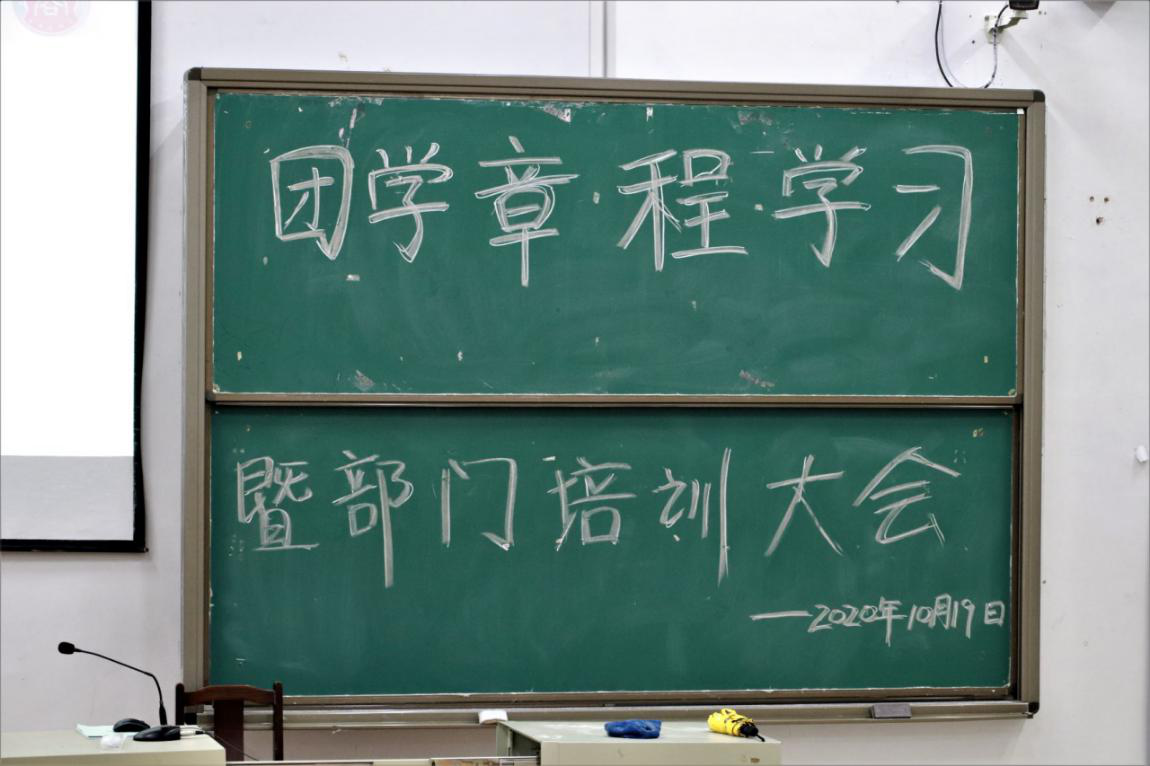 团学章程学习
暨部门培训大会
—2020年10月19日